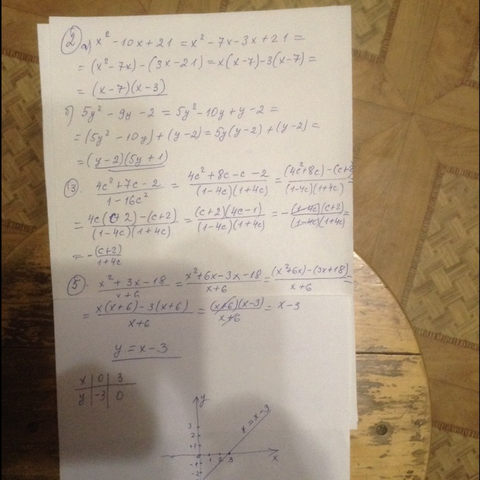 ② а) x² - 10x + 21 = x² - 7x - 3x + 21 =
= (x² - 7x) - (3x - 21) = x(x - 7) - 3(x - 7) =
= (x - 7)(x - 3)
б) 5y² - 9y - 2 = 5y² - 10y + y - 2 =
= (5y² - 10y) + (y - 2) = 5y(y - 2) + (y - 2) =
= (y - 2)(5y + 1)
③ (4c² + 7c - 2)/(1 - 16c²) = (4c² + 8c - c - 2)/((1 - 4c)(1 + 4c)) = ((4c² + 8c) - (c + 2))/((1 - 4c)(1 + 4c)) =
= (4c(c + 2) - (c + 2))/((1 - 4c)(1 + 4c)) = ((c + 2)(4c - 1))/((1 - 4c)(1 + 4c)) = -((1 - 4c)(c + 2))/((1 - 4c)(1 + 4c)) =
= -(c + 2)/(1 + 4c)
⑤ (x² + 3x - 18)/(x + 6) = (x² + 6x - 3x - 18)/(x + 6) = ((x² + 6x) - (3x + 18))/(x + 6) =
= (x(x + 6) - 3(x + 6))/(x + 6) = ((x + 6)(x - 3))/(x + 6) = x - 3
y = x - 3
x | 0 | 3
y | -3 | 0
y
y = x - 3
3
2
1
1 2 3 x
-1
-2